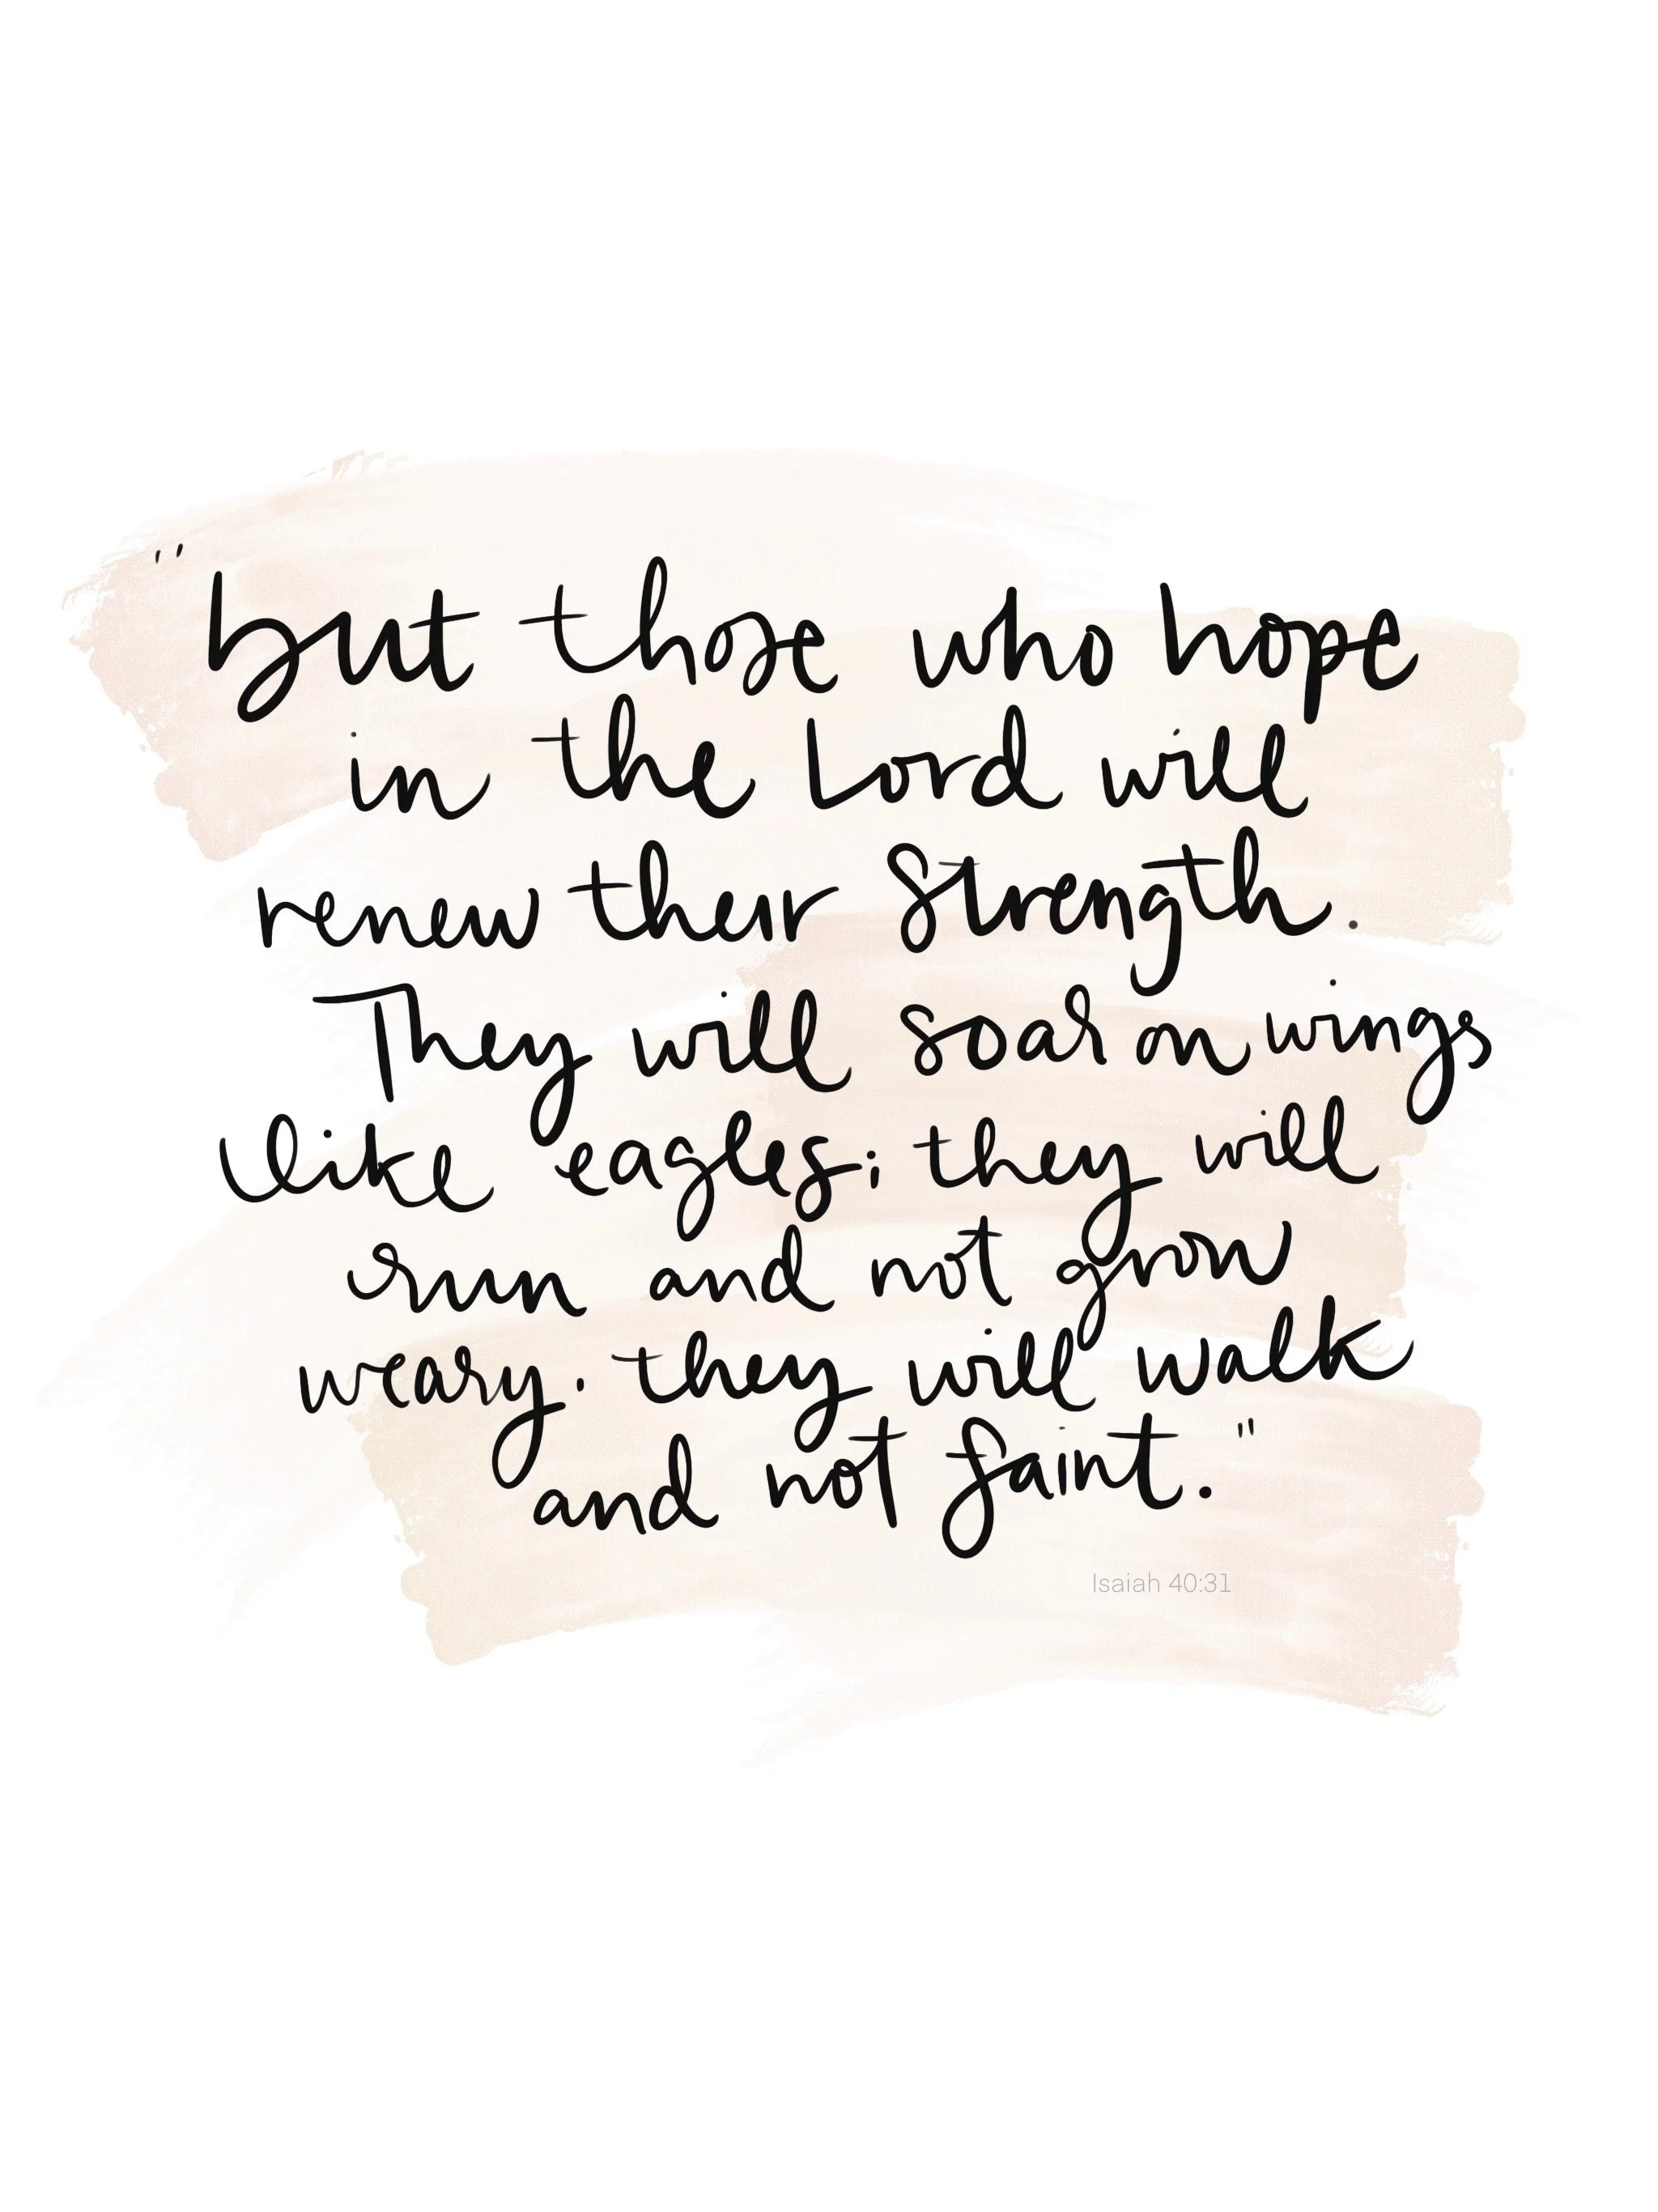 "but those who hope
in the Lord will
renew their strength.
They will soar on wings
like eagles; they will
run and not grow
weary. they will walk
and not faint."
Isaiah 40:31